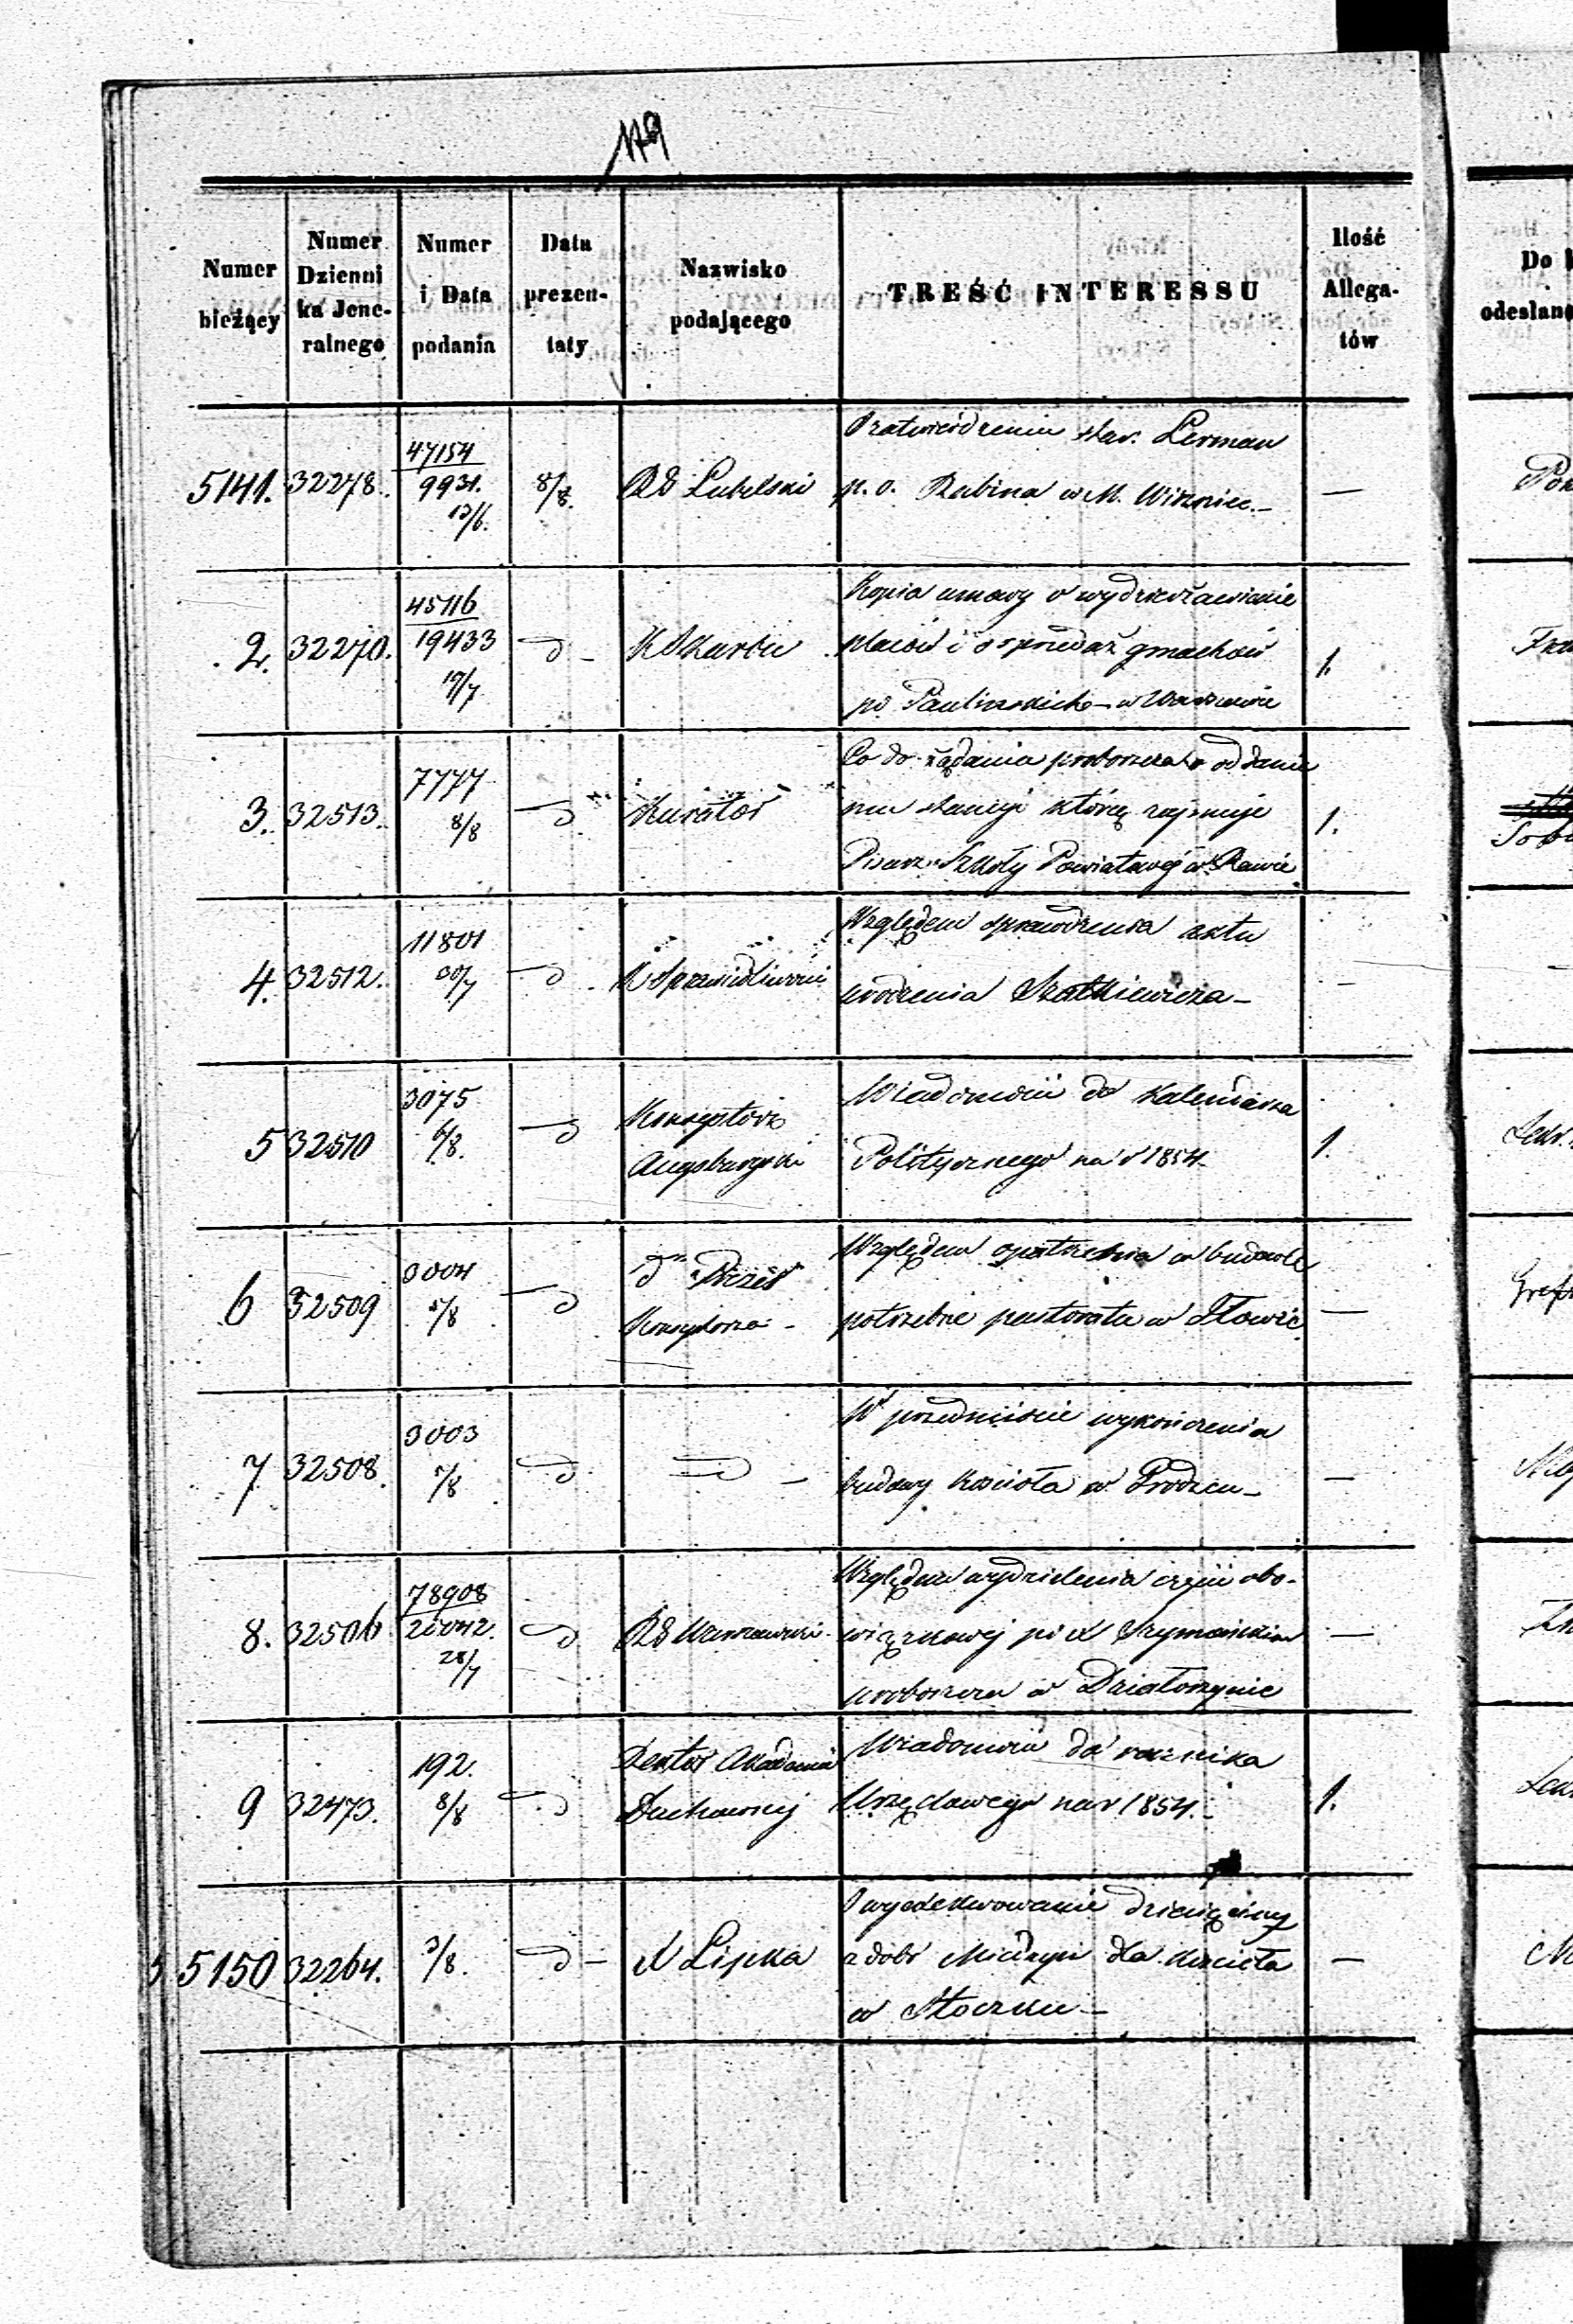 179
Numer bieżący
Numer Dzienni ka Jene- ralnego
Numer i Data podania
Data prezen- taty
Nazwisko podającego
TREŚĆ INTERESSU
Ilość Allega- tów
Do
odesłano
5141. 32278. 47154 9931. 12/6. 8/8. RG Lubelski
O zatwierdzeniu star. Lerman
p. o. Rabina w M. —
2. 32270. 45116 19433 19/7 d – K Skarbu
Kopia umowy o wydzierżawienie
placów i o sprzedaż gmachów
po Paulińskich – w Warszawie 1.
3. 32513. 7777 8/8 d Kurator
Co do żądania proboszcza o oddanie
mu stancyi którą zajmuje
Pisarz Szkoły Powiatowéj w Rawie 1.
4. 32512. 11801 30/7 d K Sprawiedliwości
Względem sprawdzenia aktu
urodzenia Szatkiewicza – –
5 32510 3075 6/8. d Konsystorz
Augsburgski
Wiadomości do Kalendarza
Politycznego na r 1854. 1.
6 32509 3004 5/8 d d° Prezes
Konsystorza –
Względem opatrzenia w budowle
potrzebne pastoratu w Iłowie —
7 32508 3003 5/8 d d –
W przedmiocie wykończenia
budowy Kościoła w – —
8. 32506 78908 28/7 d RG Warszawski
Względem wydzielenia części obo-
wiązkowej po X Szymańskim
proboszczu w Działoszynie —
9 32473. 192. 8/8 d Rektor Akademii
Duchownej
Wiadomości do rocznika
Urzędowego na r 1854. – 1.
5150 32264. 3/8. d – X Lipka
O wyexekwowanie dziesięciny
z dóbr dla Kościoła
w Stoczku – —